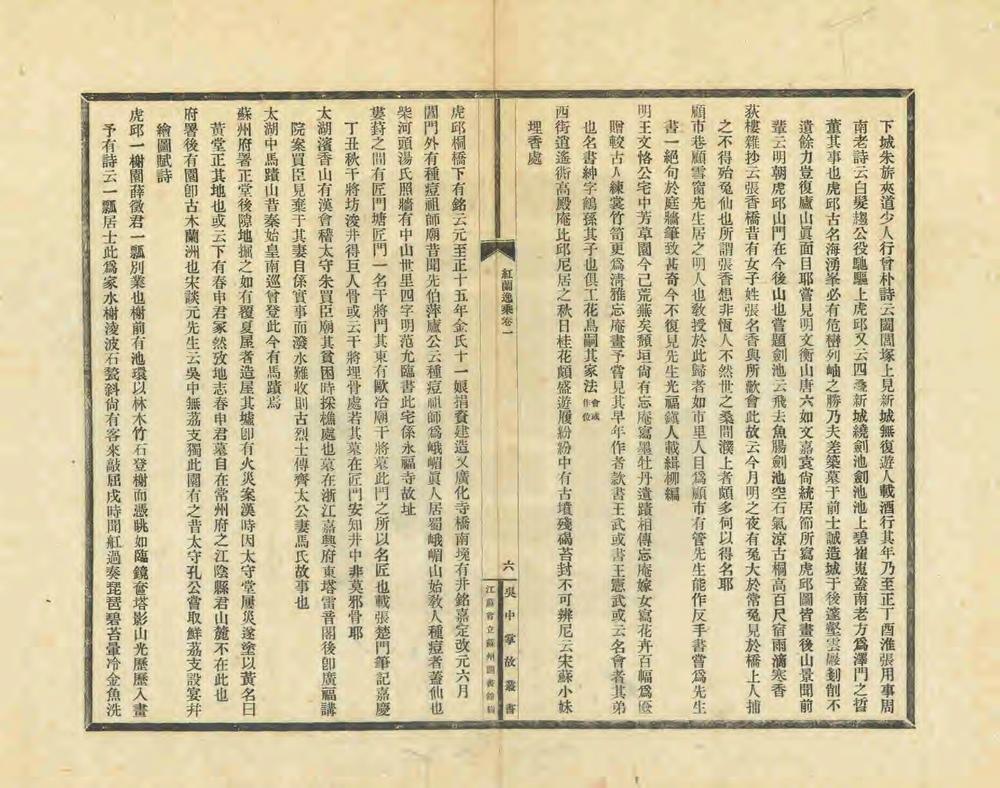 下城朱旂夾道少人行曾朴詩云闔閭塚上見新城無復遊人載酒行其年乃至正丁酉淮張用事周
南老詩云白髮趨公役驅驅上虎邱又云四疊新城繞劍池劍池池上碧崔嵬蓋南老方爲澤門之晳
董其事也虎邱古名海湧峯必有危巒列岫之勝乃夫差築墓于前士誠造城于後邃壑雲巖剗削不
遺餘力豈復廬山眞面目耶嘗見明文衡山唐六如文嘉袁尙統居節所寫虎邱圖皆畫後山景聞前
輩云明朝虎邱山門在今後山也嘗題劍池云飛去魚腸劍池空石氣涼古桐高百尺宿雨滴寒香
荻樓雜抄云張香橋昔有女子姓張名香與所歡會此故云今月明之夜有兔大於常兔見於橋上人捕
之不得殆兔仙也所謂張香想非恆人不然世之桑間濮上者頗多何以得名耶
顧市巷顧雪窗先生居之明人也敎授於此歸者如市里人目爲顧市有管先生能作反手書嘗爲先生
書一絕句於庭牆筆致甚奇今不復見先生光福鎭人載緝柳編
明王文恪公宅中芳草園今已荒蕪矣頹垣尙有忘庵寫墨牡丹遺蹟相傳忘庵嫁女寫花卉百幅爲匳
贈較古人練裳竹笥更爲淸雅忘庵畫予嘗見其早年作者款書王武或書王憲武或云名會者其弟
也名書紳字鶴孫其子也俱工花鳥嗣其家法會或作位
西街逍遙衖高殿庵此邱尼居之秋日桂花頗盛遊履紛紛中有古墳殘碣苔封不可辨尼云宋蘇小妹
埋香處
紅蘭逸乘卷一
六
吳中掌故叢書
江蘇省立蘇州圖書館輯
虎邱桐橋下有銘云元至正十五年金氏十一娘捐資建造又廣化寺橋南塊有井銘嘉定改元六月
閶門外有種痘祖師廟昔聞先伯萍廬公云種痘祖師爲峨嵋眞人居蜀峨嵋山始敎人種痘者蓋仙也
柴河頭湯氏照牆有中山世里四字明范允臨書此宅係永福寺故址
婁葑之間有匠門塘匠門一名干將門其東有歐冶廟干將墓此門之所以名匠也載張楚門筆記嘉慶
丁丑秋干將坊浚井得巨人骨或云干將埋骨處若其墓在匠門安知井中非莫邪骨耶
太湖濱香山有漢會稽太守朱買臣廟其貧困時採樵處也墓在浙江嘉興府東塔雷音閣後卽廣福講
院案買臣見棄于其妻自係實事而潑水難收則古烈士傳齊太公妻馬氏故事也
太湖中馬蹟山昔秦始皇南巡曾登此今有馬蹟焉
蘇州府署正堂後隙地掘之如有覆夏屋者造屋其墟卽有火災案漢時因太守堂屢災遂塗以黃名曰
黃堂正其地也或云下有春申君冢然攷地志春申君墓自在常州府之江陰縣君山麓不在此也
府署後有園卽古木蘭洲也宋談元先生云吳中無荔支獨此園有之昔太守孔公嘗取鮮荔支設宴幷
繪圖賦詩
虎邱一榭園薛徵君一瓢別業也榭前有池環以林木竹石登榭而憑眺如臨鏡奩塔影山光歷歷入畫
予有詩云一瓢居士此爲家水榭淩波石甃斜尙有客來敲屈戌時聞舡過奏琵琶碧苔暈冷金魚洗